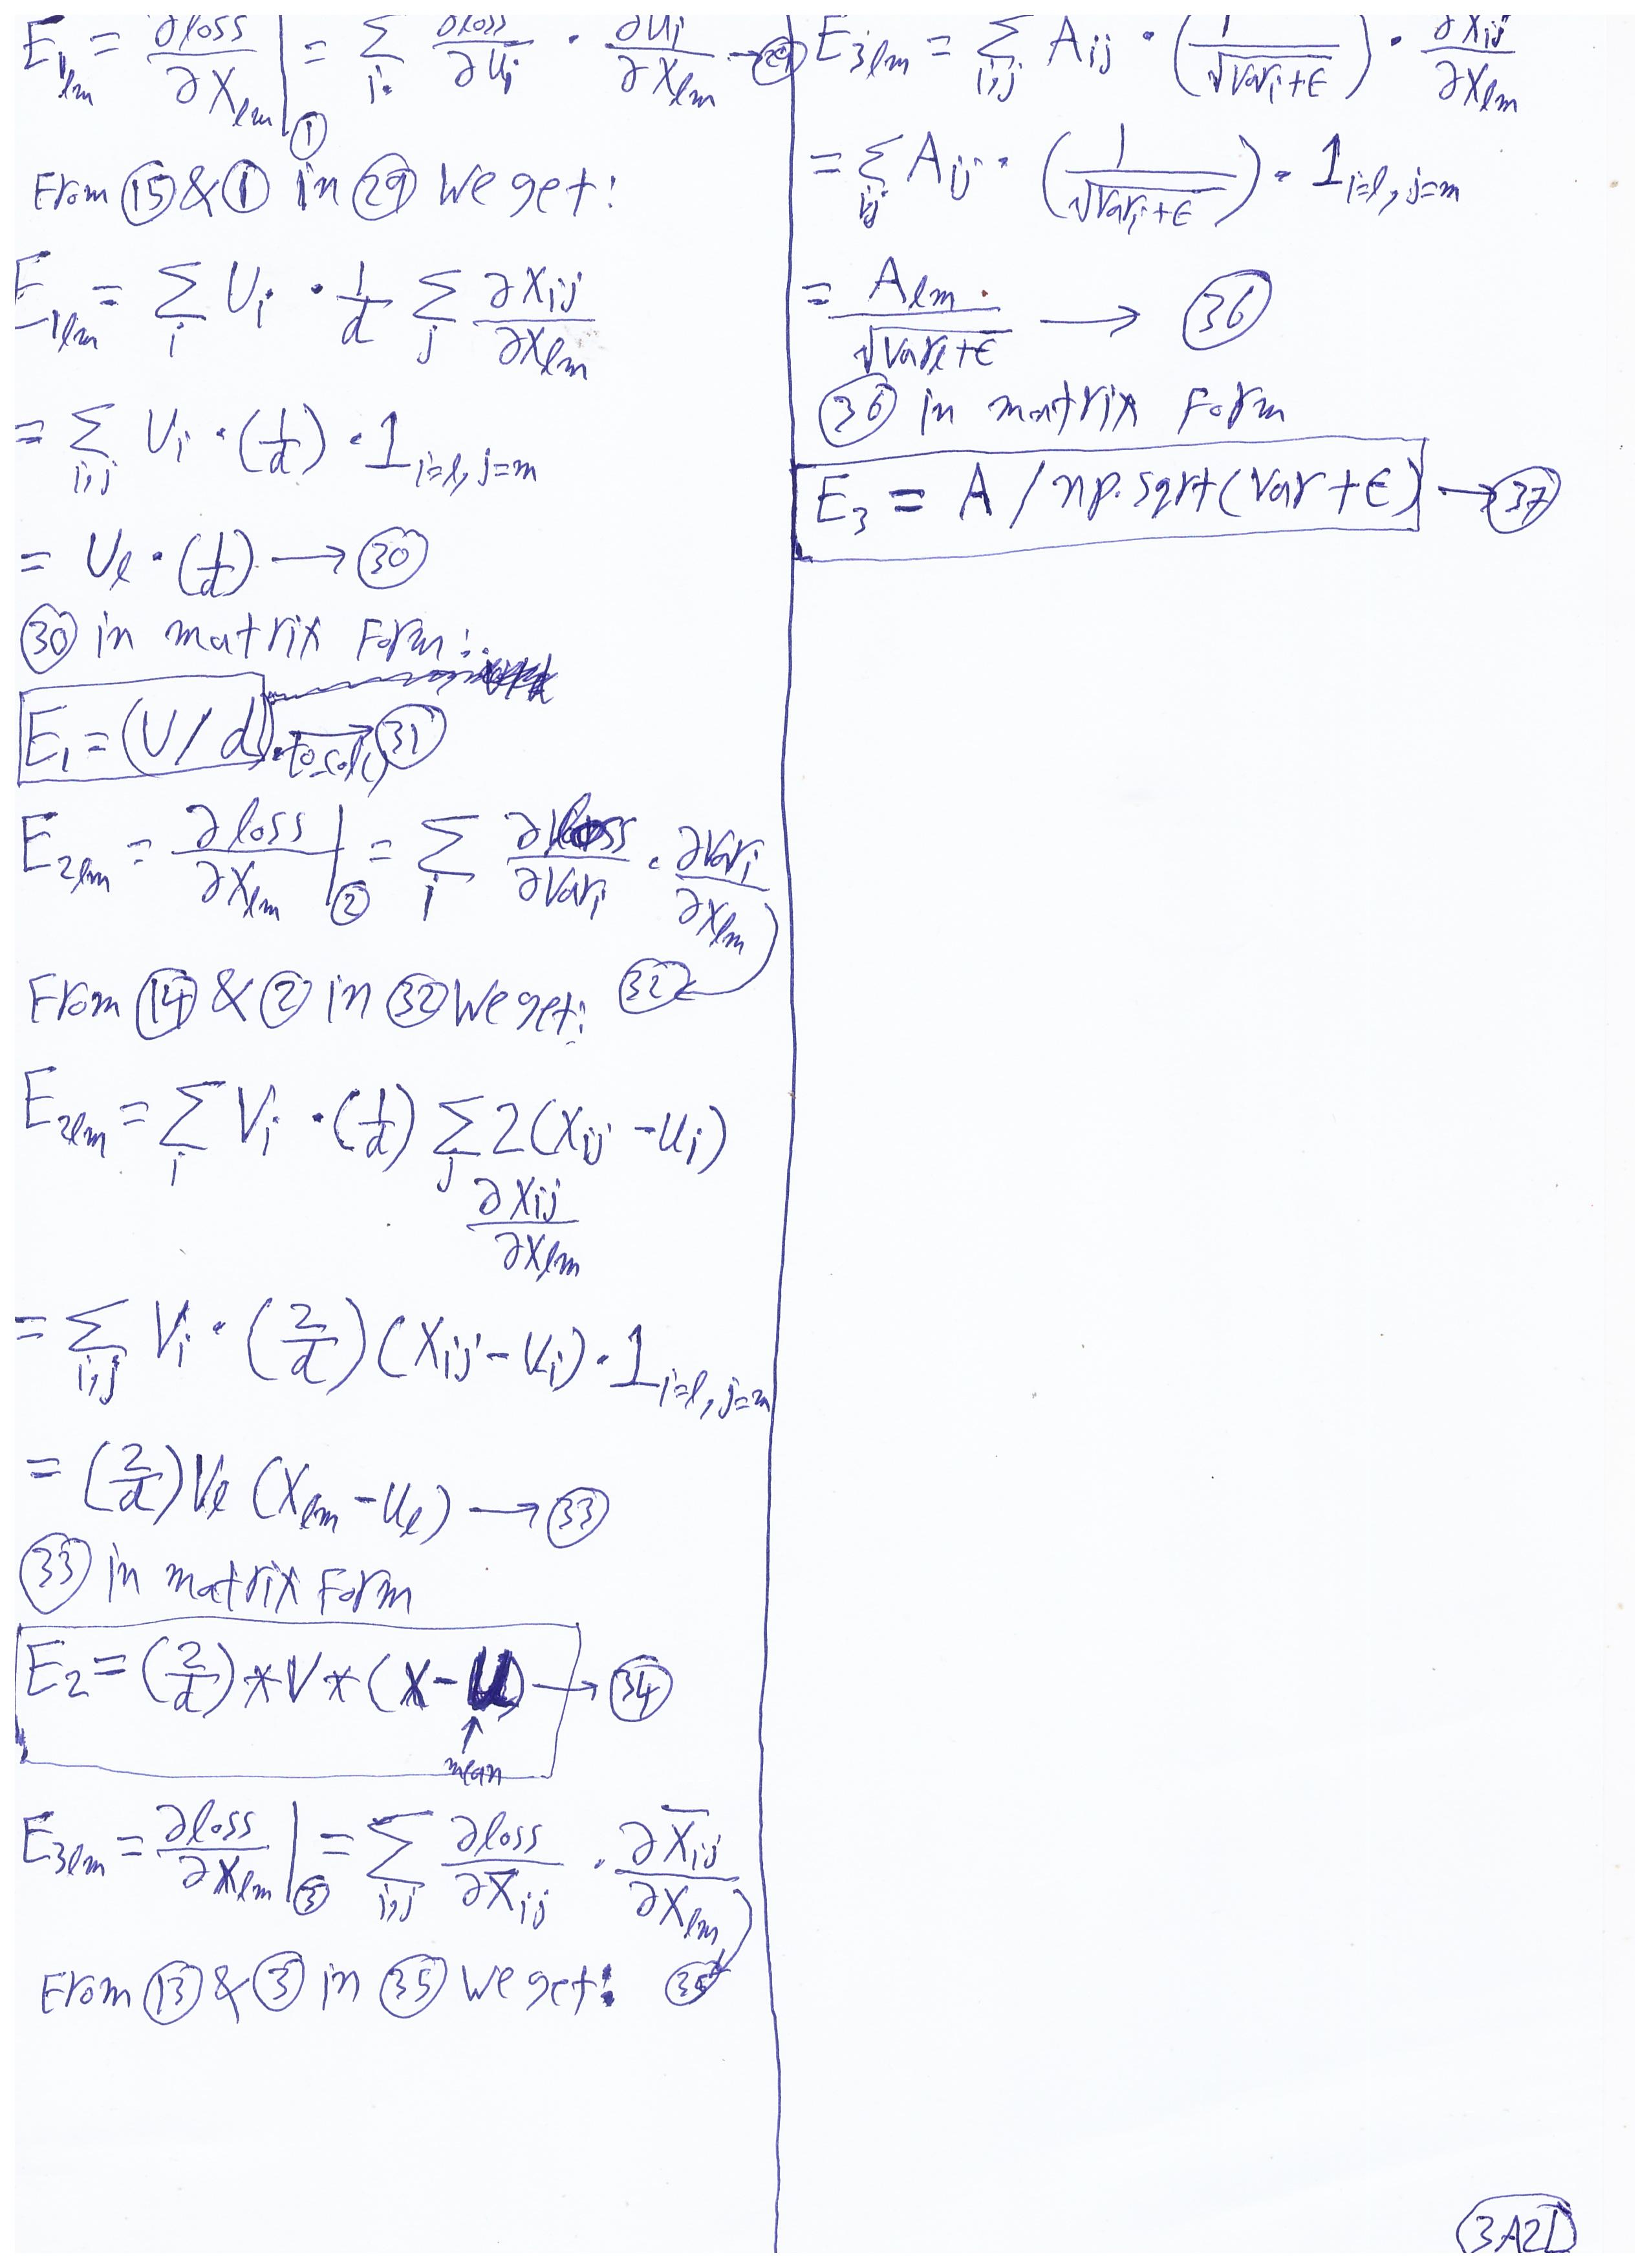 E_{1lm} = ∂loss/∂X_{lm} |_① = Σ_i ∂loss/∂u_i · ∂u_i/∂X_{lm} → ㉙
From ⑮ & ① in ㉙ We get:
E_{1lm} = Σ_i U_i · 1/d Σ_j ∂X_{ij}/∂X_{lm}
= Σ_{i,j} U_i · (1/d) · 1_{i=l, j=m}
= U_l · (1/d) → ㉚
㉚ in matrix Form:
E_1 = (U/d).to_col() → ㉛
E_{2lm} = ∂loss/∂X_{lm} |_② = Σ_i ∂loss/∂Var_i · ∂Var_i/∂X_{lm}
From ⑭ & ② in ㉜ We get: ㉜
E_{2lm} = Σ_i V_i · (1/d) Σ_j 2(X_{ij} - u_i)
∂X_{ij}/∂X_{lm}
= Σ_{i,j} V_i · (2/d) (X_{ij} - u_i) · 1_{i=l, j=m}
= (2/d) V_l (X_{lm} - u_l) → ㉝
㉝ in matrix Form
E_2 = (2/d) * V * (X - U) → ㉞
↑
mean
E_{3lm} = ∂loss/∂X_{lm} |_③ = Σ_{i,j} ∂loss/∂X̄_{ij} · ∂X̄_{ij}/∂X_{lm}
From ⑬ & ③ in ㉟ We get: ㉟
E_{3lm} = Σ_{i,j} A_{ij} · (1/√(Var_i+ϵ)) · ∂X_{ij}/∂X_{lm}
= Σ_{ij} A_{ij} · (1/√(Var_i+ϵ)) · 1_{i=l, j=m}
= A_{lm}/√(Var_l+ϵ) → ㊱
㊱ in matrix Form
E_3 = A / np.sqrt(Var + ϵ) → ㊲
3A2D